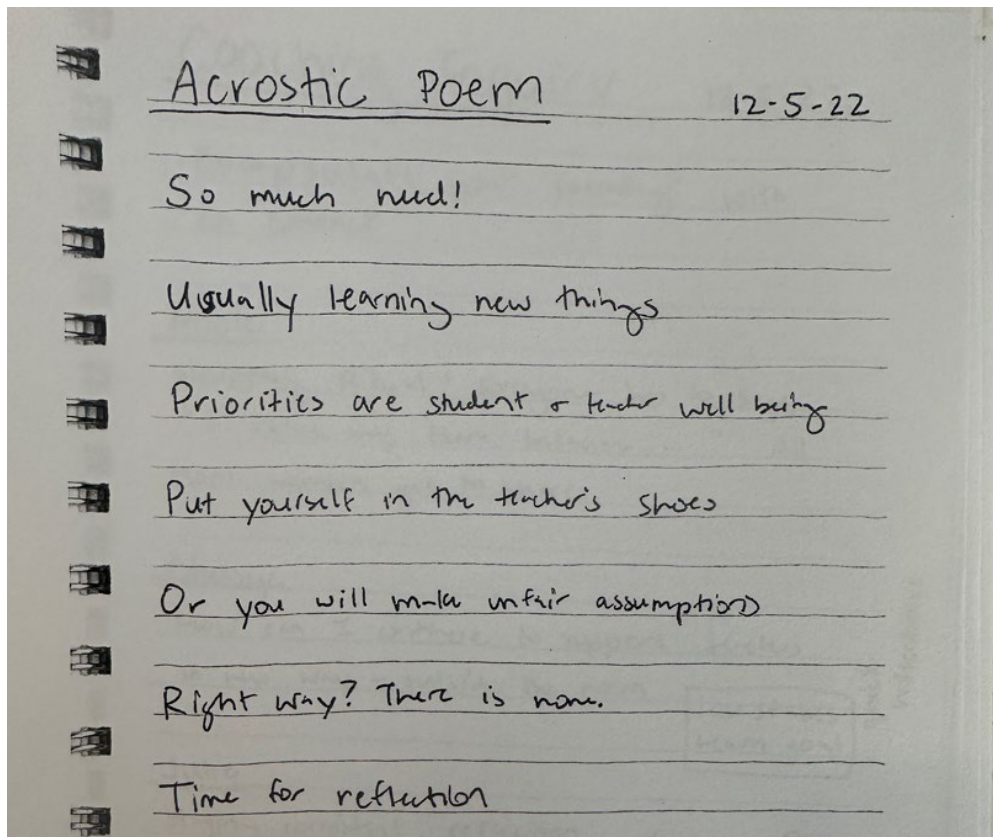 Acrostic Poem 12-5-22
So much need!
Usually learning new things
Priorities are student & teacher well being
Put yourself in the teacher's shoes
Or you will make unfair assumptions
Right way? There is none.
Time for reflection